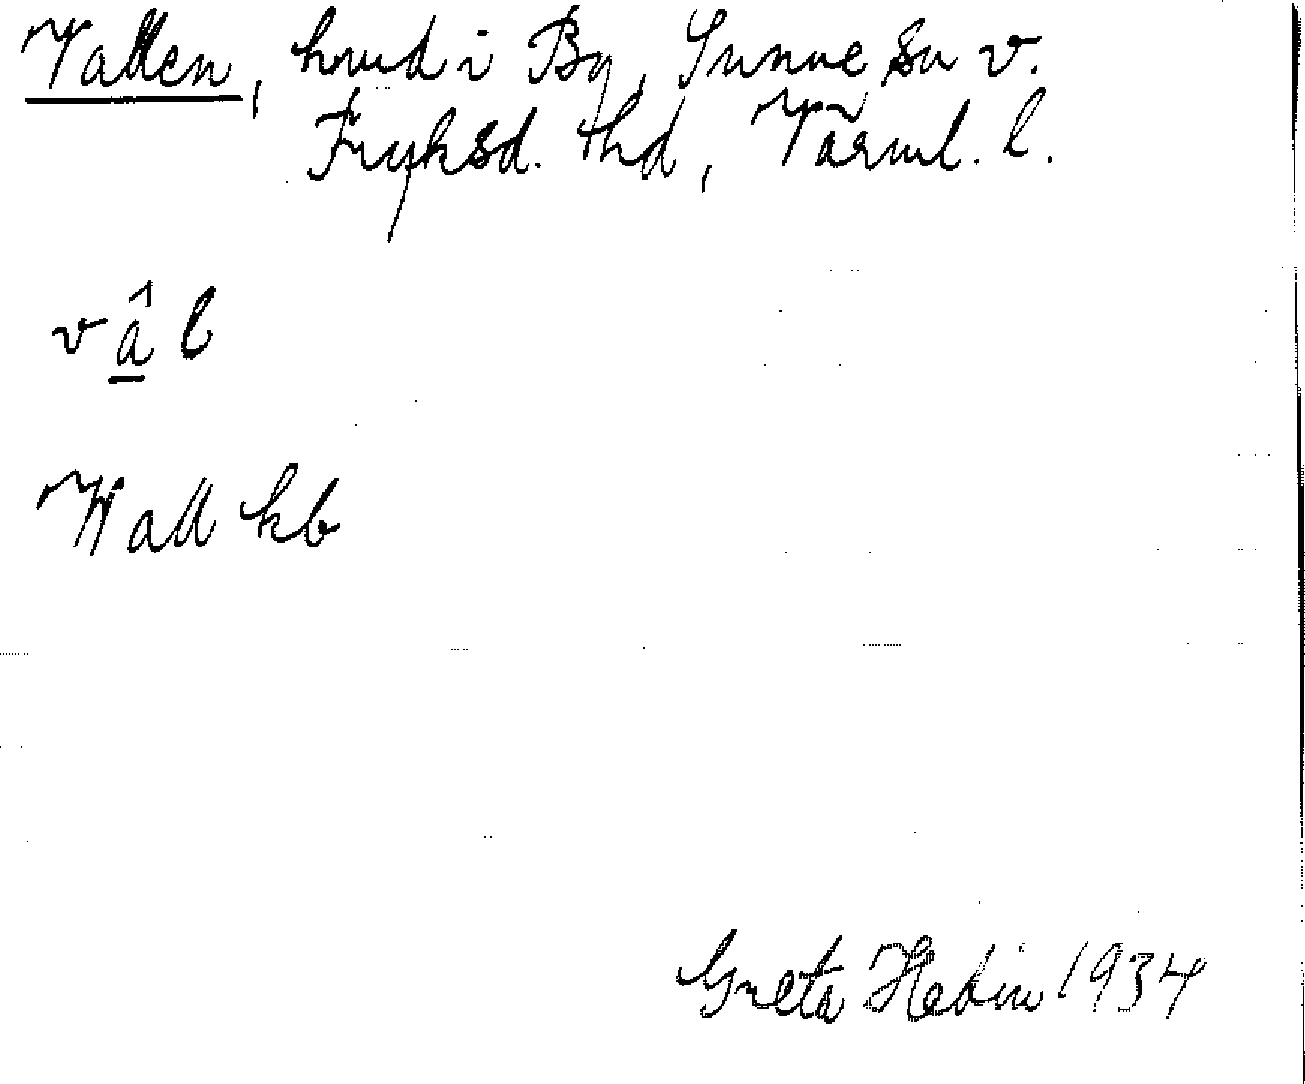 Vallen, hmd i By, Sunne sn v.
Fryksd. thd, Värml. l.
vâl
Wall kb
Greta Hedin 1934